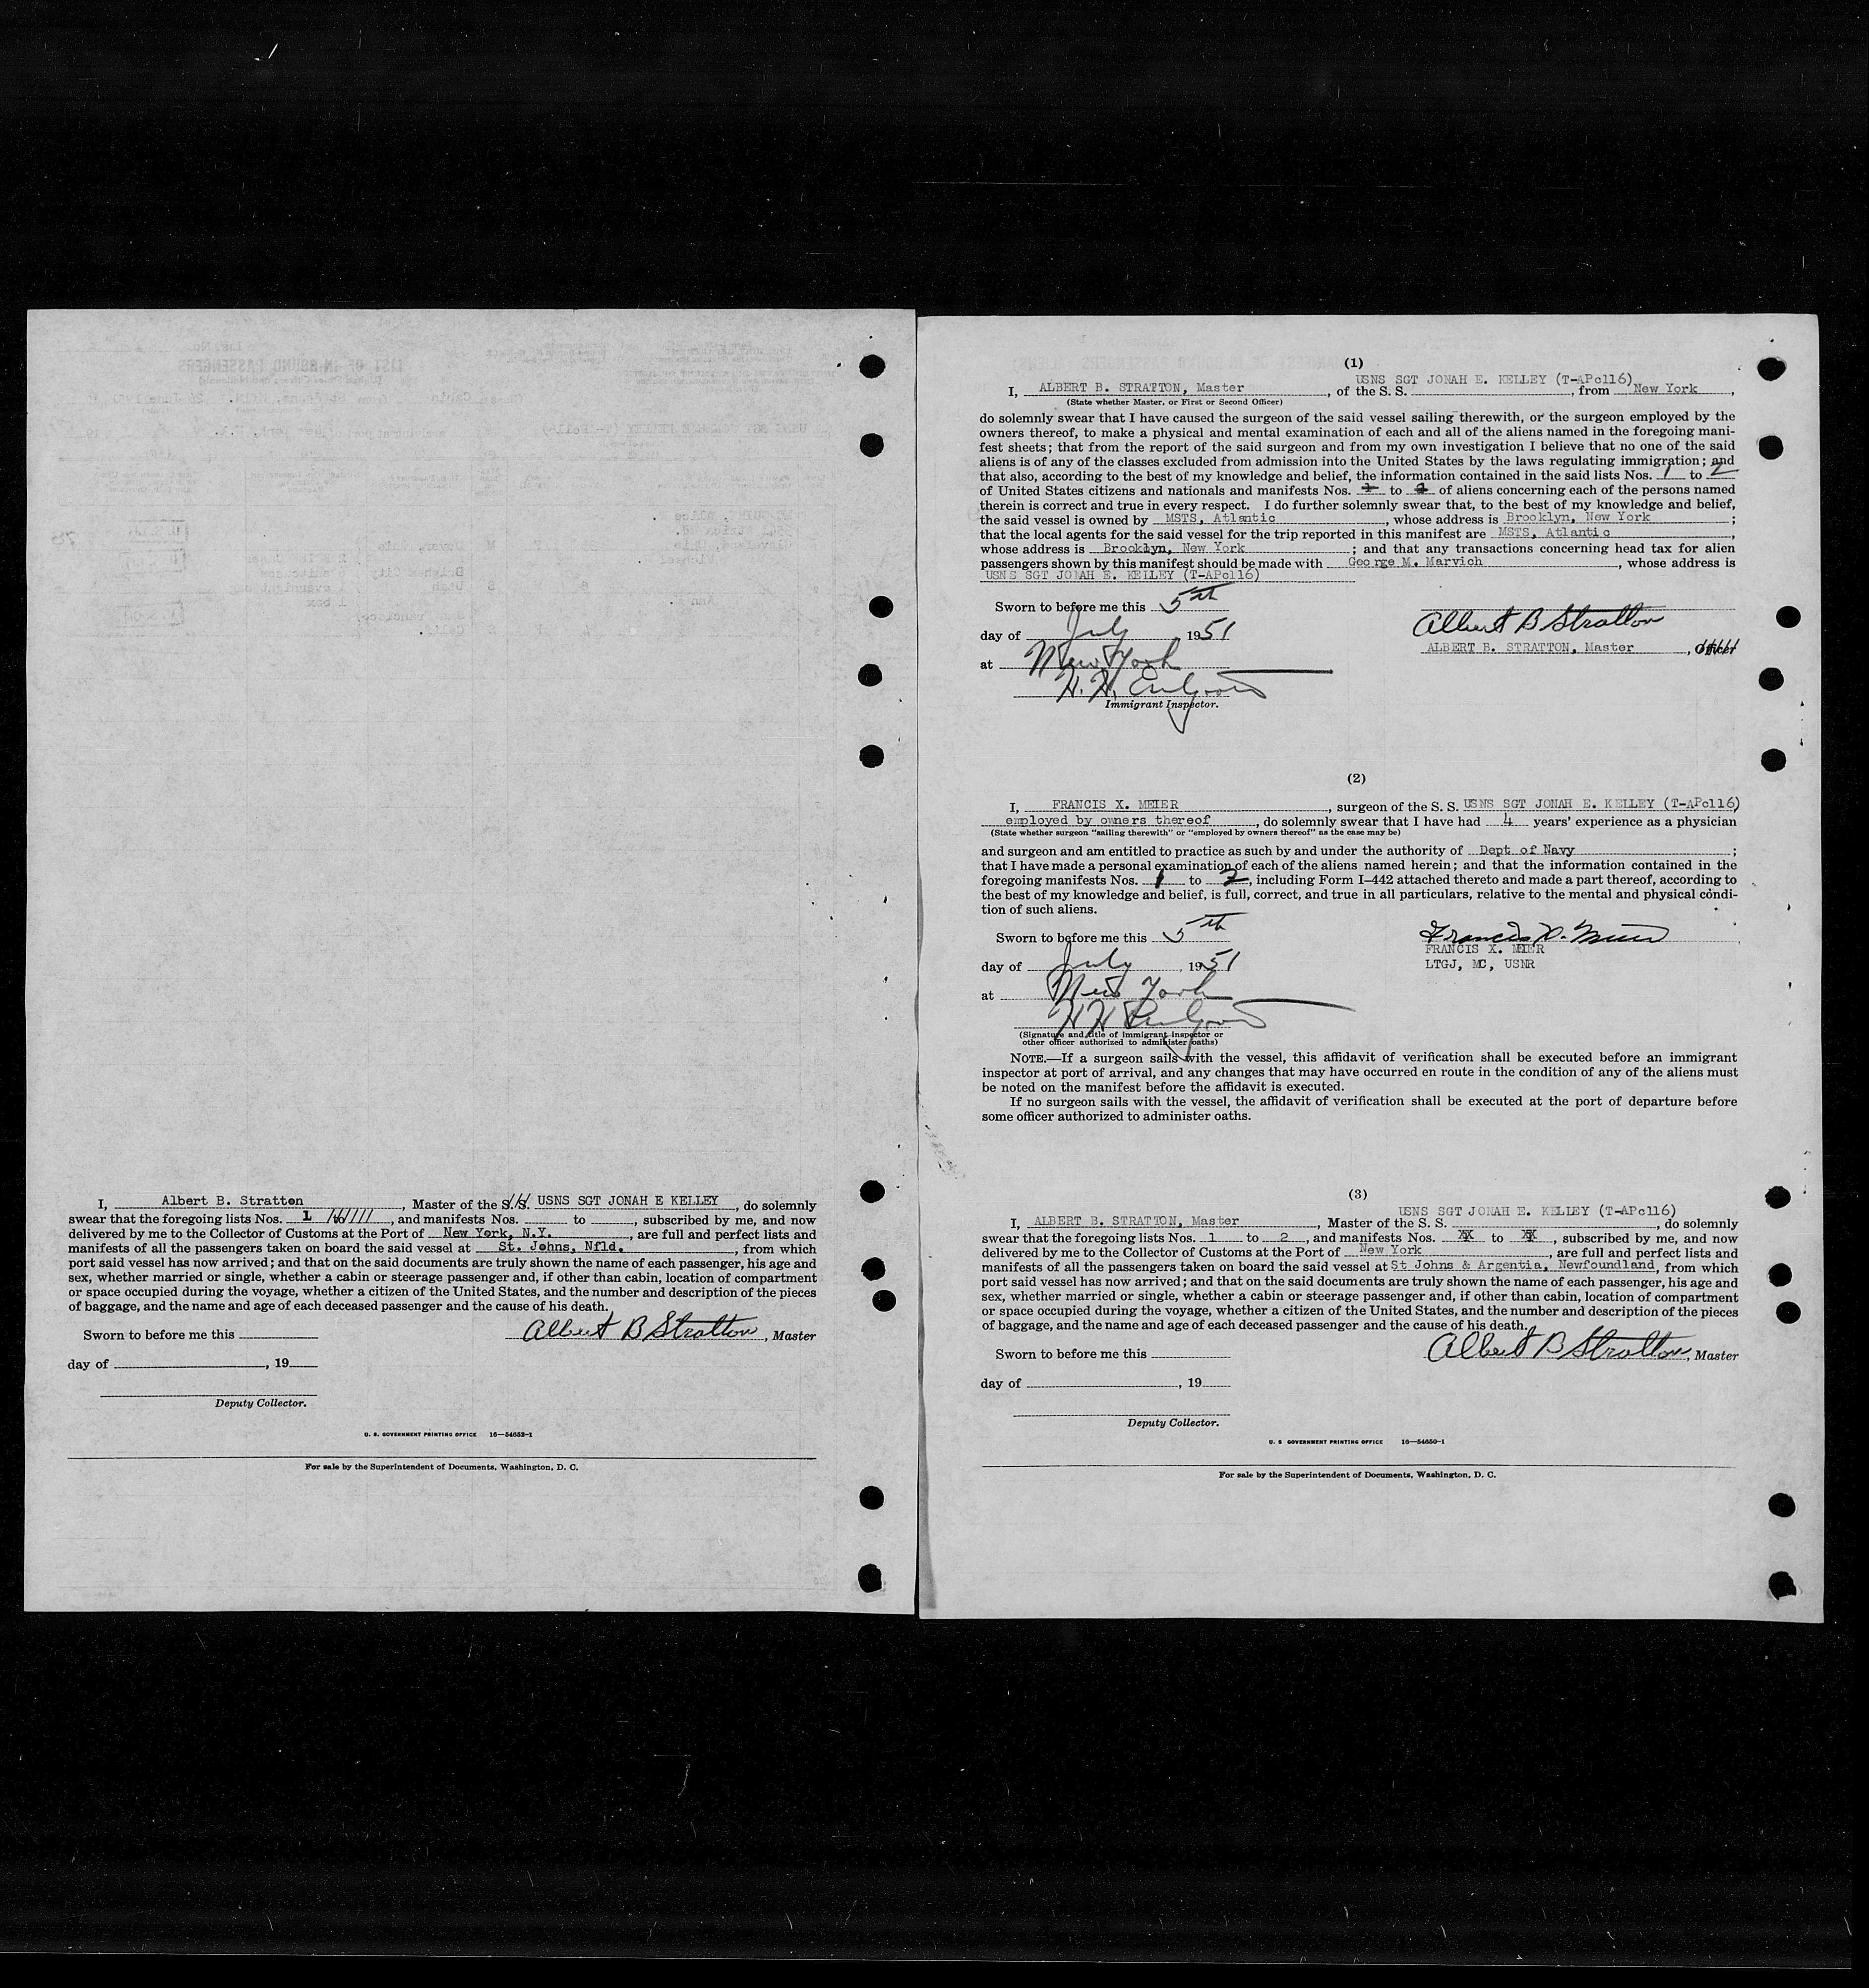 I, Albert B. Stratton, Master of the S.S. USNS SGT JONAH E KELLEY, do solemnly
swear that the foregoing lists Nos. 1 to, and manifests Nos. to, subscribed by me, and now
delivered by me to the Collector of Customs at the Port of New York, N.Y., are full and perfect lists and
manifests of all the passengers taken on board the said vessel at St. Johns, Nfld., from which
port said vessel has now arrived; and that on the said documents are truly shown the name of each passenger, his age and
sex, whether married or single, whether a cabin or steerage passenger and, if other than cabin, location of compartment
or space occupied during the voyage, whether a citizen of the United States, and the number and description of the pieces
of baggage, and the name and age of each deceased passenger and the cause of his death.
Sworn to before me this
Albert B Stratton, Master
day of , 19
Deputy Collector.
U. S. GOVERNMENT PRINTING OFFICE 16—54652-1
For sale by the Superintendent of Documents, Washington, D. C.
(1)
USNS SGT JONAH E. KELLEY (T-APc116)
I, ALBERT B. STRATTON, Master, of the S. S. , from New York,
(State whether Master, or First or Second Officer)
do solemnly swear that I have caused the surgeon of the said vessel sailing therewith, or the surgeon employed by the
owners thereof, to make a physical and mental examination of each and all of the aliens named in the foregoing mani-
fest sheets; that from the report of the said surgeon and from my own investigation I believe that no one of the said
aliens is of any of the classes excluded from admission into the United States by the laws regulating immigration; and
that also, according to the best of my knowledge and belief, the information contained in the said lists Nos. 1 to 2
of United States citizens and nationals and manifests Nos. to of aliens concerning each of the persons named
therein is correct and true in every respect. I do further solemnly swear that, to the best of my knowledge and belief,
the said vessel is owned by MSTS, Atlantic, whose address is Brooklyn, New York;
that the local agents for the said vessel for the trip reported in this manifest are MSTS, Atlantic,
whose address is Brooklyn, New York; and that any transactions concerning head tax for alien
passengers shown by this manifest should be made with George M. Marvich, whose address is
USNS SGT JONAH E. KELLEY (T-APc116)
Sworn to before me this 5th
Albert B Stratton
day of July 1951
ALBERT B. STRATTON, Master, Officer
at New York
Immigrant Inspector.
(2)
I, FRANCIS X. MEIER, surgeon of the S. S. USNS SGT JONAH E. KELLEY (T-APc116)
employed by owners thereof, do solemnly swear that I have had 4 years' experience as a physician
(State whether surgeon "sailing therewith" or "employed by owners thereof" as the case may be)
and surgeon and am entitled to practice as such by and under the authority of Dept of Navy;
that I have made a personal examination of each of the aliens named herein; and that the information contained in the
foregoing manifests Nos. 1 to 2, including Form I-442 attached thereto and made a part thereof, according to
the best of my knowledge and belief, is full, correct, and true in all particulars, relative to the mental and physical condi-
tion of such aliens.
Sworn to before me this 5th
Francis X. Meier
FRANCIS X. MEIER
day of July, 1951
LTGJ, MC, USNR
at New York
(Signature and title of immigrant inspector or
other officer authorized to administer oaths)
NOTE.—If a surgeon sails with the vessel, this affidavit of verification shall be executed before an immigrant
inspector at port of arrival, and any changes that may have occurred en route in the condition of any of the aliens must
be noted on the manifest before the affidavit is executed.
If no surgeon sails with the vessel, the affidavit of verification shall be executed at the port of departure before
some officer authorized to administer oaths.
(3)
USNS SGT JONAH E. KELLEY (T-APc116)
I, ALBERT B. STRATTON, Master, Master of the S. S. , do solemnly
swear that the foregoing lists Nos. 1 to 2, and manifests Nos. XX to XX, subscribed by me, and now
delivered by me to the Collector of Customs at the Port of New York, are full and perfect lists and
manifests of all the passengers taken on board the said vessel at St Johns & Argentia, Newfoundland, from which
port said vessel has now arrived; and that on the said documents are truly shown the name of each passenger, his age and
sex, whether married or single, whether a cabin or steerage passenger and, if other than cabin, location of compartment
or space occupied during the voyage, whether a citizen of the United States, and the number and description of the pieces
of baggage, and the name and age of each deceased passenger and the cause of his death.
Sworn to before me this
Albert B Stratton, Master
day of , 19
Deputy Collector.
U. S GOVERNMENT PRINTING OFFICE 16—54650-1
For sale by the Superintendent of Documents, Washington, D. C.